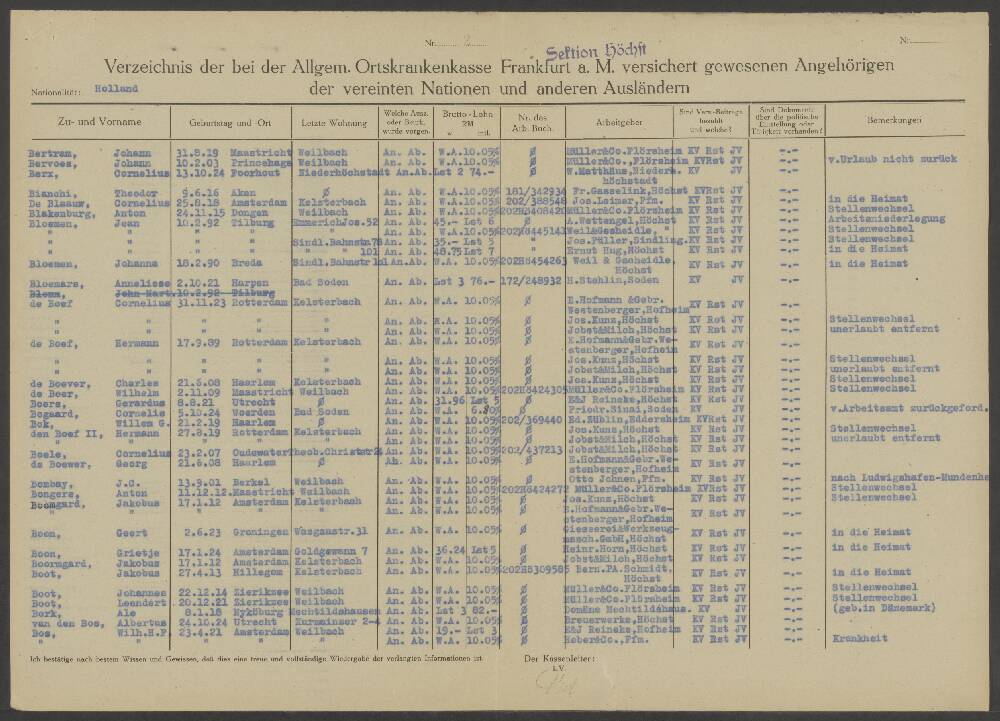 Nr. 2
Nr.
Sektion Höchst
Verzeichnis der bei der Allgem. Ortskrankenkasse Frankfurt a. M. versichert gewesenen Angehörigen
Nationalität: Holland
der vereinten Nationen und anderen Ausländern
Zu- und Vorname Geburtstag und -Ort Letzte Wohnung Welche Amz. oder Beurk. wurde vorgen. Brutto-Lohn RM Nr. des Arb. Buch. Arbeitgeber Sind Vers.-Beiträge bezahlt und welche? Sind Dokumente über die politische Einstellung oder Tätigkeit vorhanden? Bemerkungen
Bertram, Johann 31.8.19 Maastricht Weilbach An. Ab. W.A.10.05% Ø Müller&Co.Flörsheim KV Rst JV -.-
Hervoes, Johann 10.2.03 Princehage Weilbach An. Ab. W.A.10.05% Ø Müller&Co.,Flörsheim KVRst JV -.- v.Urlaub nicht zurück
Berx, Cornelius 13.10.24 Poorhout Niederhöchstadt An.Ab. Lst 2 74.- Ø W.Matthäus,Niederh. KV -.-
höchstadt
Bianchi, Theodor 9.6.16 Aken Ø An. Ab. W.A.10.05% 181/342934 Fr.Gasselink,Höchst KVRst JV -.-
De Blaauw, Cornelius 25.8.18 Amsterdam Kelsterbach An. Ab. W.A.10.05% 202/388548 Jos.Leimer,Ffm. KV Rst JV -.- in die Heimat
Blakenburg, Anton 24.11.15 Dongen Weilbach An. Ab. W.A.10.05% 202H6408420 Müller&Co.Flörsheim KV Rst JV -.- Stellenwechsel
Bloemen, Jean 10.2.92 Tilburg EmmerichJos.52 An. Ab. 45.- Lst 6 Ø A.Wettengel,Höchst KV Rst JV -.- Arbeitsniederlegung
" " " " " An. Ab. W.A. 10.05% 202H6445143 Weil&Gscheidle, " KV Rst JV -.- Stellenwechsel
" " " " Sindl.Bahnstr.78 An. Ab. 35.- Lst 5 " Jos.Füller,Sindling. KV Rst JV -.- Stellenwechsel
" " " " " 101 An. Ab. 48.75 Lst 7 " Ernst Hug,Höchst KV Rst JV -.- in die Heimat
Bloemen, Johanna 18.2.90 Breda Sindl.Bahnstr 101 An.Ab. W.A. 10.05% 202H6454263 Weil & Gscheidle, KV Rst JV -.- in die Heimat
Höchst
Bloemars, Anneliese 2.10.21 Harpen Bad Soden An. Ab. Lst 3 76.- 172/248932 H.Stehlin,Soden KV JV -.-
de Boef Cornelius 31.11.23 Rotterdam Kelsterbach An. Ab. W.A. 10.05% Ø E.Hofmann &Gebr. KV Rst JV -.-
Westenberger,Hofheim
" " " " " An. Ab. W.A. 10.05% Ø Jos.Kunz,Höchst KV Rst JV -.- Stellenwechsel
" " " " " An. Ab. W.A. 10.05% Ø Jobst&Milch,Höchst KV Rst JV -.- unerlaubt entfernt
de Boef, Hermann 17.9.89 Rotterdam Kelsterbach An. Ab. W.A. 10.05% Ø E.Hofmann&Gebr.We- KV Rst JV -.-
stenberger,Hofheim
" " " " " An. Ab. W.A. 10.05% Ø Jos.Kunz,Höchst KV Rst JV -.- Stellenwechsel
" " " " " An. Ab. W.A. 10.05% Ø Jobst&Milch,Höchst KV Rst JV -.- unerlaubt entfernt
de Boever, Charles 21.6.08 Haarlem Kelsterbach An. Ab. W.A. 10.05% Ø Jos.Kunz,Höchst KV Rst JV -.- Stellenwechsel
de Boer, Wilhelm 2.11.09 Maastricht Weilbach An. Ab. W.A. 10.05% 202H6424305 Müller&Co.Flörsheim KV Rst JV -.- Stellenwechsel
Boers, Gerardus 8.8.21 Utrecht Ø An. Ab. 31.96 Lst 5 Ø E&J Reincke,Höchst KV Rst JV -.-
Bogaard, Cornelis 5.10.24 Woerden Bad Soden An. Ab. W.A. 6.80% Ø Prior.Sinai,Soden KV JV -.- v.Arbeitsamt zurückgeford.
Bok, Willem G. 21.2.19 Haarlem Ø An. Ab. W.A. 10.05% 202/369440 Ed.Hüblin,Eddersheim KVRst JV -.-
den Boef II, Hermann 27.8.19 Rotterdam Kelsterbach An. Ab. W.A. 10.05% Ø Jos.Kunz,Höchst KV Rst JV -.- Stellenwechsel
" " " " An. Ab. W.A. 10.05% Ø Jobst&Milch,Höchst KV Rst JV -.- unerlaubt entfernt
Boele, Cornelius 23.2.07 Oudewater Theob.Christstr24 An. Ab. W.A. 10.05% 202/437213 Jobst&Milch,Höchst KV Rst JV -.-
de Boewer, Georg 21.6.08 Haarlem Ø An. Ab. W.A. 10.05% Ø E.Hofmann&Gebr.We- KV Rst JV -.-
stenberger,Hofheim
Bombay, J.C. 13.9.01 Berkel Weilbach An. Ab. W.A. 10.05% Ø Otto Johnen,Ffm. KV Rst JV -.- nach Ludwigshafen-Mundenhe
Bongers, Anton 11.12.12 Maastricht Weilbach An. Ab. W.A. 10.05% 202H6424272 Müller&Co.Flörsheim KVRst JV -.- Stellenwechsel
Boomgard, Jakobus 17.1.12 Amsterdam Kelsterbach An. Ab. W.A. 10.05% Ø Jos.Kunz,Höchst KV Rst JV -.- Stellenwechsel
Ø E.Hofmann&Gebr.We-
stenberger,Hofheim
Boon, Geert 2.6.23 Groningen Wasganstr.31 An. Ab. W.A. 10.05% Ø Giesserei&Werkzeug- KV Rst JV -.- in die Heimat
masch.GmbH,Höchst
Boon, Grietje 17.1.24 Amsterdam Goldgewann 7 An. Ab. 36.24 Lst5 Ø Heinr.Horn,Höchst KV Rst JV -.- in die Heimat
Boormgard, Jakobus 17.1.12 Amsterdam Kelsterbach An. Ab. W.A. 10.05% Ø Jobst&Milch,Höchst KV Rst JV -.-
Boot, Jakobus 27.4.13 Hillegom Kelsterbach An. Ab. W.A. 10.05% 202H8309585 Bern.PA.Schmidt, KV Rst JV -.- in die Heimat
Höchst
Boot, Johannes 22.12.14 Zieriksee Weilbach An. Ab. W.A. 10.05% Ø Müller&Co.Flörsheim KV Rst JV -.- Stellenwechsel
Boot, Leendert 20.12.21 Zieriksee Weilbach An. Ab. W.A. 10.05% Ø Müller&Co.Flörsheim KV Rst JV -.- Stellenwechsel
Bork, Ale 8.1.18 Nyköburg Mechtildshausen An. Ab. Lst 3 82.- Ø Domäne Mechtildshaus. KV JV -.- (geb.in Dänemark)
van den Bos, Albertus 24.10.24 Utrecht Kurmainzer 2-4 An. Ab. W.A. 10.05% Ø Breuerwerke,Höchst KV Rst JV -.-
Bos, Wilh.H.F. 23.4.21 Amsterdam Weilbach An. Ab. 19.- Lst 3 Ø E&J Reincke,Hofheim KV Rst JV -.-
" " An. Ab. W.A. 10.05% Ø Weber&Co.,Ffm. KV Rst JV -.- Krankheit
Ich bestätige nach bestem Wissen und Gewissen, daß dies eine treue und vollständige Wiedergabe der verlangten Informationen ist. Der Kassenleiter:
i.V.